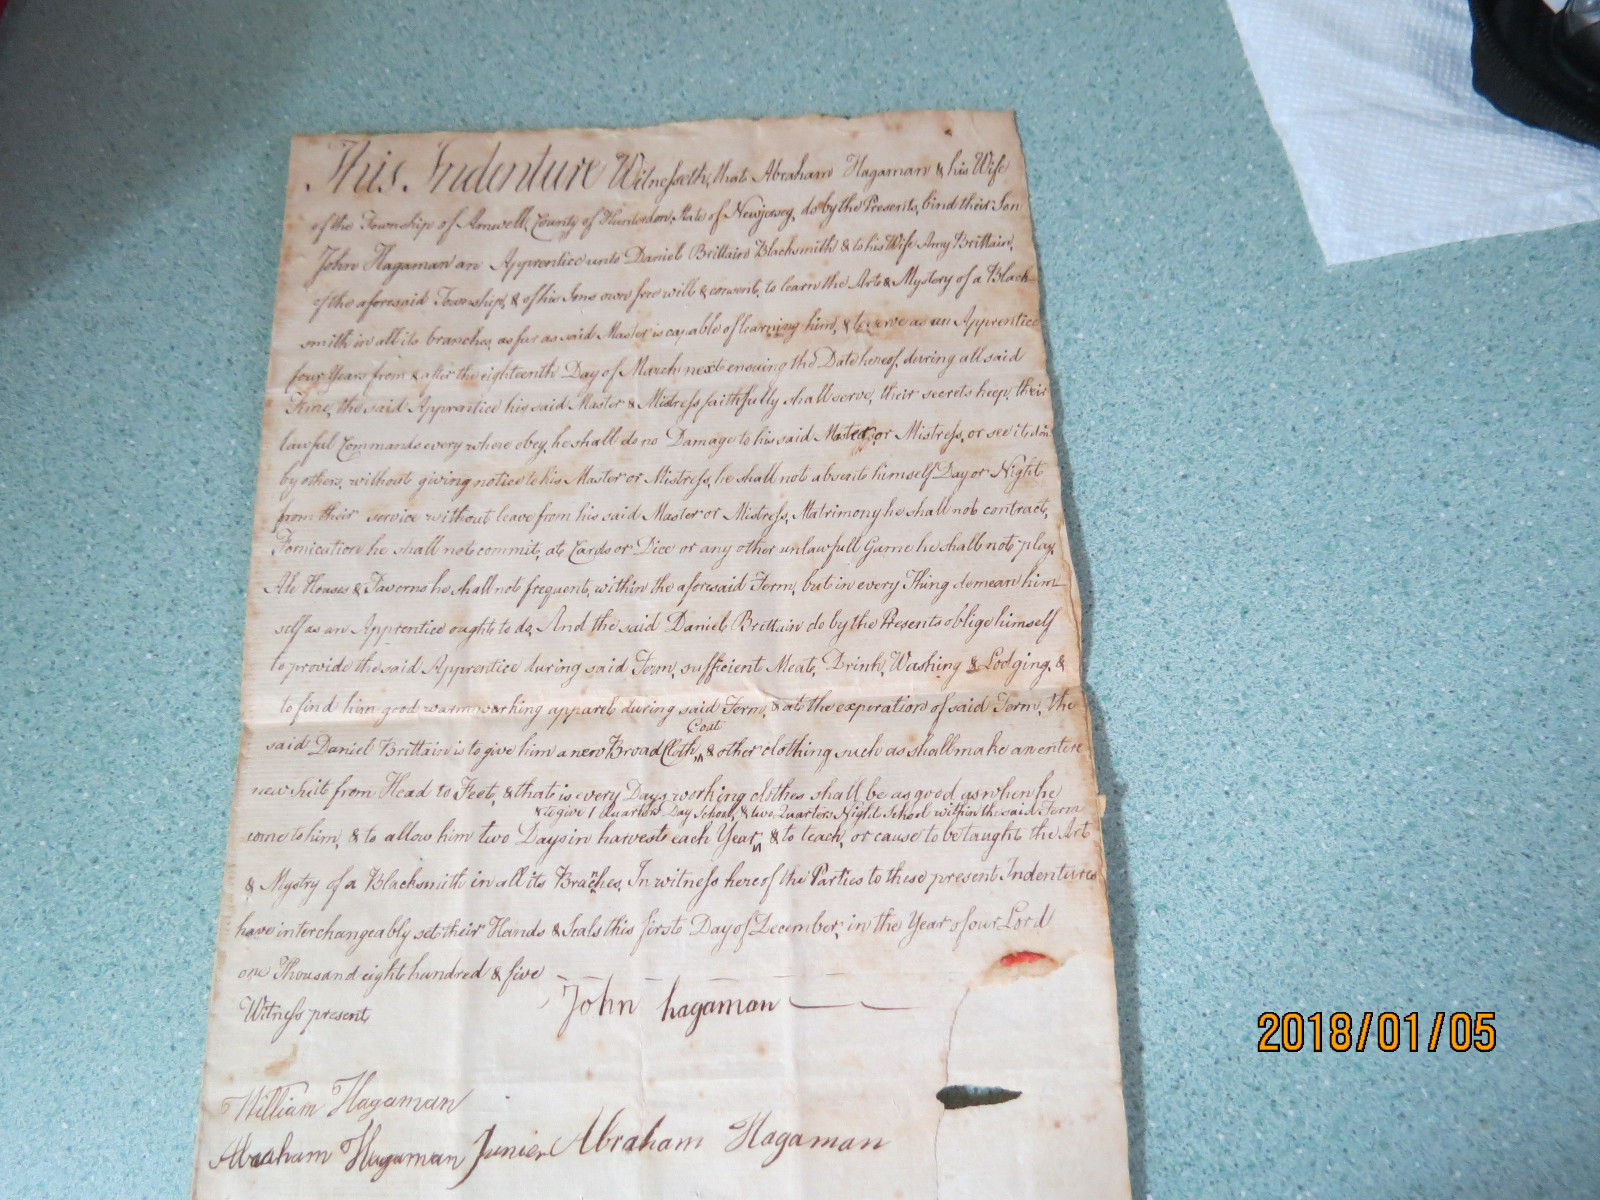 This Indenture Witnesseth, that Abraham Hagaman & his Wife
of the Township of Amwell, County of Hunterdon, State of Newjersey, do by the Presents, bind their Son
John Hagaman an Apprentice unto Daniel Brittain Blacksmith & to his Wife Amy Brittain,
of the aforesaid Township, & of his Sons own free will & consent, to learn the Art & Mystery of a Black
smith in all its branches, as far as said Master is capable of learning him, & to serve as an Apprentice
four Years from & after the eighteenth Day of March next ensuing the Date hereof, during all said
Time, the said Apprentice his said Master & Mistress faithfully shall serve, their secrets keep, their
lawful Commands every where obey, he shall do no Damage to his said Master, or Mistress, or see it don
by others, without giving notice to his Master or Mistress, he shall not absent himself Day or Night
from their service without leave from his said Master or Mistress, Matrimony he shall not contract,
Fornication he shall not commit, at Cards or Dice or any other unlawfull Game he shall not play,
Ale Houses & Taverns he shall not frequent, within the aforesaid Term, but in every Thing demean him
self as an Apprentice ought to do, And the said Daniel Brittain do by the Presents oblige himself
to provide the said Apprentice during said Term, sufficient Meat, Drink, Washing & Lodging, &
to find him good warm working apparel during said Term, & at the experation of said Term, the
Coat
said Daniel Brittain is to give him a new Broad Cloth, & other clothing such as shall make an entire
new Suit from Head to Feet, & that is every Days working clothes shall be as good as when he
& to give 1 Quarters Day School, & two Quarters Night School within the said Term
come to him, & to allow him two Days in harvest each Year, & to teach, or cause to be taught the Art
& Mystry of a Blacksmith in all its Branches, In witness hereof the Parties to these present Indentures
have interchangeably set their Hands & Seals this first Day of December, in the Year of our Lord
one Thousand eight hundred & five
Witness present
John hagaman
William Hagaman
Abraham Hagaman Junier Abraham Hagaman
2018/01/05